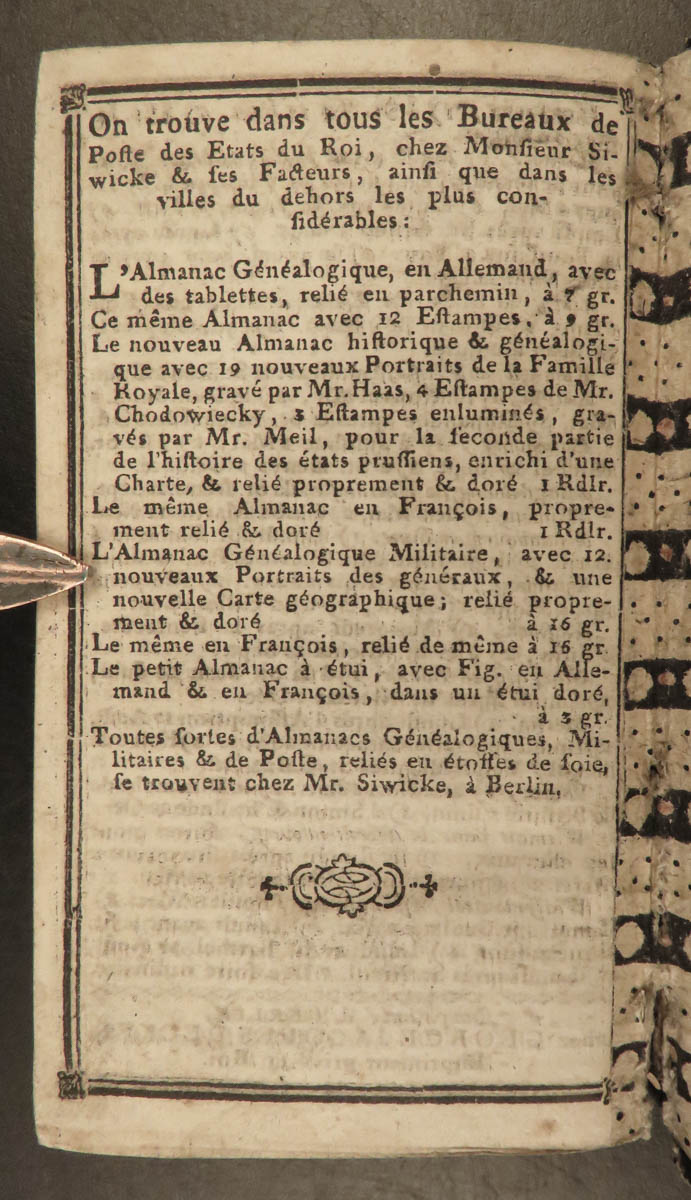 On trouve dans tous les Bureaux de
Poſte des Etats du Roi, chez Monſieur Si-
wicke & ſes Facteurs, ainſi que dans les
villes du dehors les plus con-
ſidérables:
L'Almanac Généalogique, en Allemand, avec
des tablettes, relié en parchemin, à 7 gr.
Ce même Almanac avec 12 Eſtampes, à 9 gr.
Le nouveau Almanac hiſtorique & généalogi-
que avec 19 nouveaux Portraits de la Famille
Royale, gravé par Mr. Haas, 4 Eſtampes de Mr.
Chodowiecky, 3 Eſtampes enluminés, gra-
vés par Mr. Meil, pour la ſeconde partie
de l'hiſtoire des états pruſſiens, enrichi d'une
Charte, & relié proprement & doré 1 Rdlr.
Le même Almanac en François, propre-
ment relié & doré 1 Rdlr.
L'Almanac Généalogique Militaire, avec 12.
nouveaux Portraits des généraux, & une
nouvelle Carte géographique; relié propre-
ment & doré à 16 gr.
Le même en François, relié de même à 16 gr
Le petit Almanac à étui, avec Fig. en Alle-
mand & en François, dans un étui doré,
à 3 gr.
Toutes ſortes d'Almanacs Généalogiques, Mi-
litaires & de Poſte, reliés en étoffes de ſoie,
ſe trouvent chez Mr. Siwicke, à Berlin.